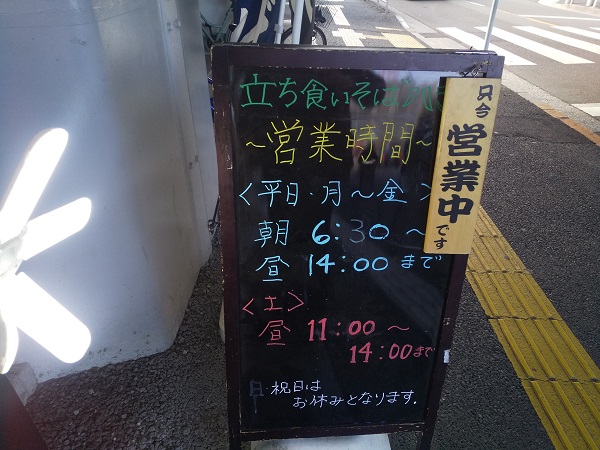 立ち食いそば
~営業時間~
<平日・月~金>
朝 6:30~
昼 14:00まで
<土>
昼 11:00~
14:00まで
日・祝日は
お休みとなります.
只今
営業中
です